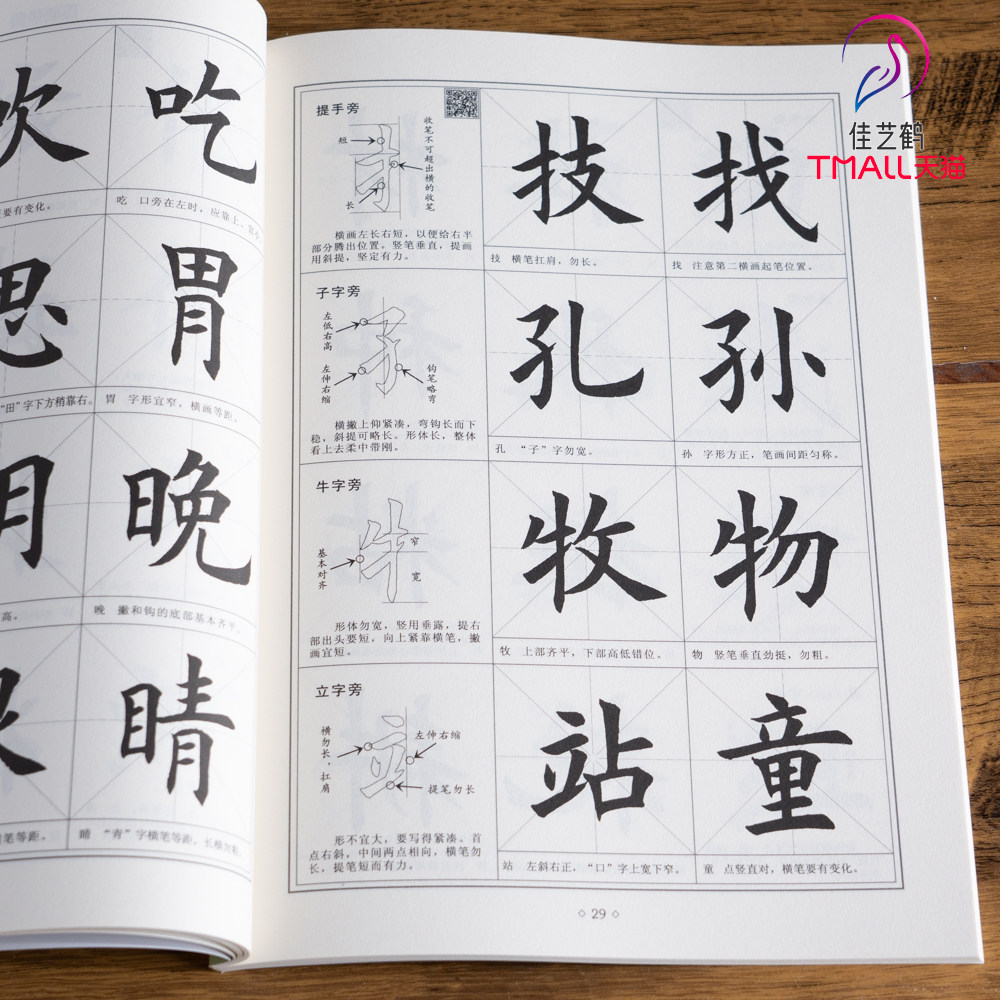 吹
吃
要有变化。
吃 口旁在左时，应靠上、宜小
思
胃
“田”字下方稍靠右。
胃 字形宜窄，横画等距。
明
晚
高。
晚 撇和钩的底部基本齐平。
睛
笔等距。
睛 “青”字横笔等距，长椎勿粗。
佳艺鹤
TMALL天猫
提手旁
短
长
收笔不可超出横的收笔
横画左长右短，以便给右半
部分腾出位置。竖笔垂直，提画
用斜提，坚定有力。
技
找
技 横笔扛肩，勿长。
找 注意第二横画起笔位置。
子字旁
左低右高
左伸右缩
钩笔略弯
横撇上仰紧凑，弯钩长而下
稳，斜提可略长。形体长，整体
看上去柔中带刚。
孔
孙
孔 “子”字勿宽。
孙 字形方正，笔画间距匀称。
牛字旁
基本对齐
窄
宽
形体勿宽，竖用垂露，提右
部出头要短，向上紧靠横笔，撇
画宜短。
牧
物
牧 上部齐平，下部高低错位。
物 竖笔垂直劲挺，勿粗。
立字旁
横勿长，扛肩
左伸右缩
提笔勿长
形不宜大，要写得紧凑。首
点右斜，中间两点相向，横笔勿
长，提笔短而有力。
站
童
站 左斜右正，“口”字上宽下窄。
童 点竖直对，横笔要有变化。
29